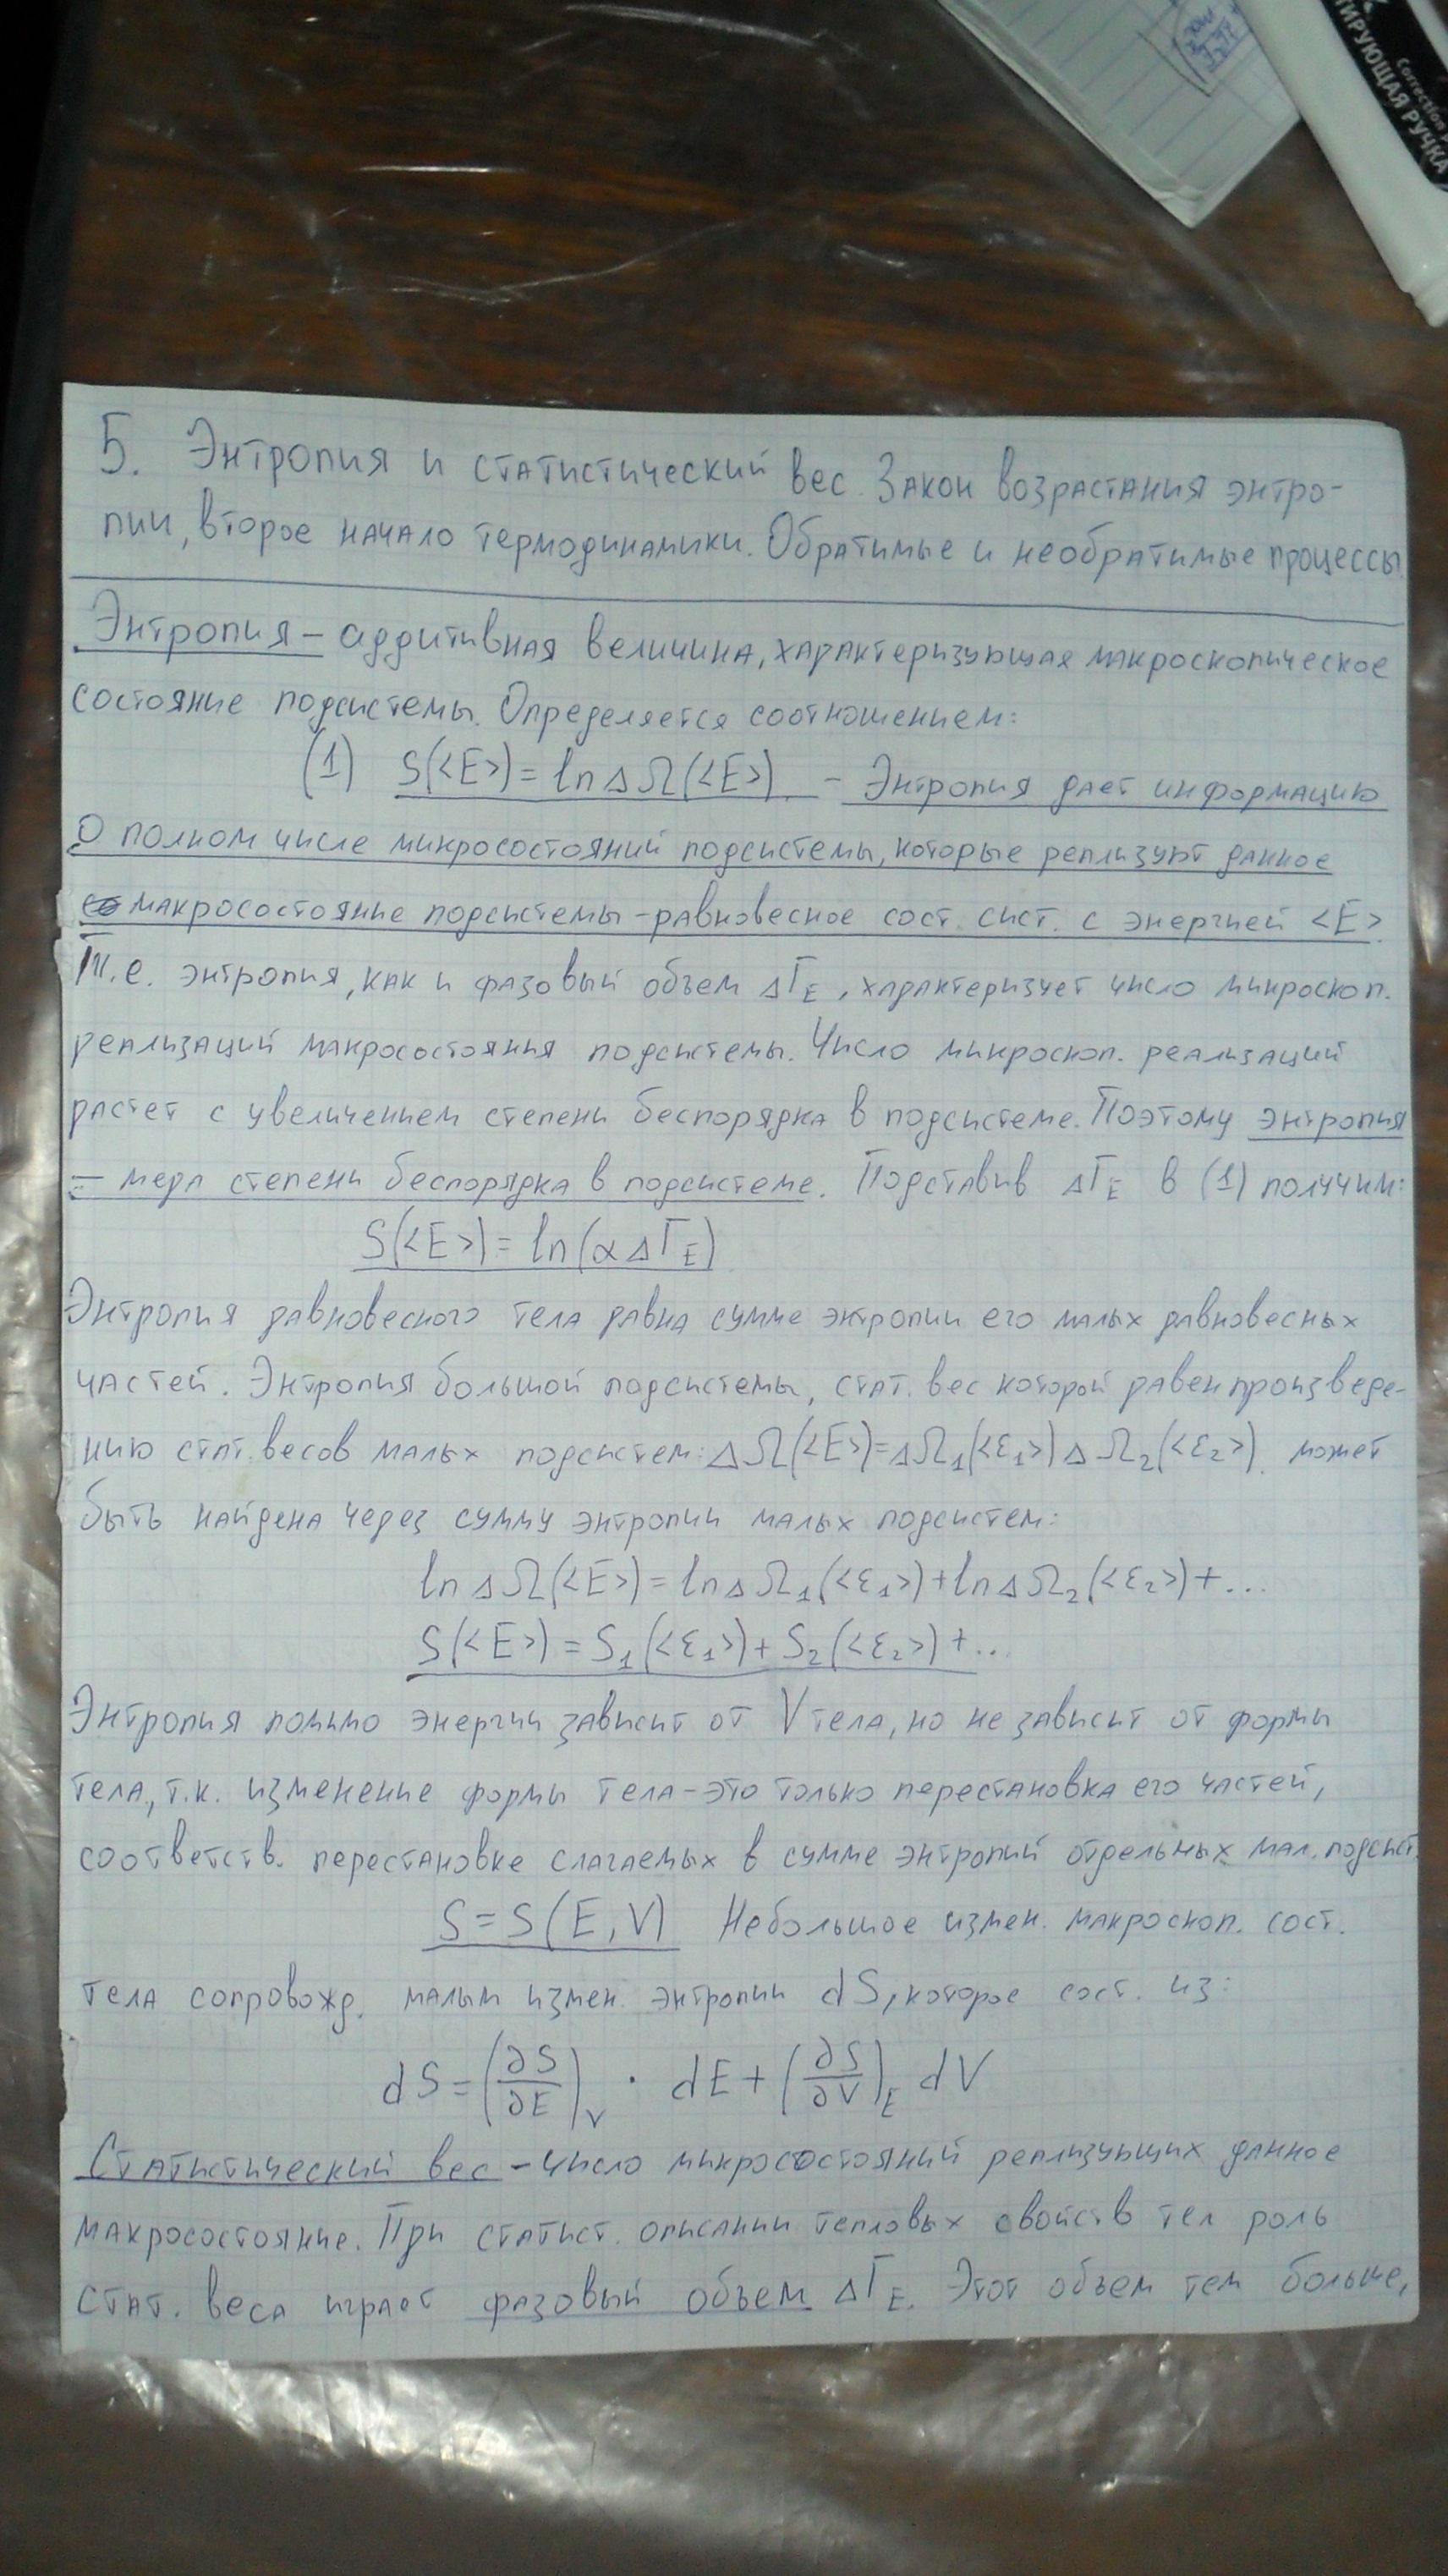 ТИРУЮЩАЯ РУЧКА
Correction
5. Энтропия и статистический вес. Закон возрастания энтро-
пии, второе начало термодинамики. Обратимые и необратимые процессы.
Энтропия – аддитивная величина, характеризующая макроскопическое
состояние подсистемы. Определяется соотношением:
(1) S(<E>) = ln ΔΩ(<E>) – Энтропия дает информацию
о полном числе микросостояний подсистемы, которые реализуют данное
макросостояние подсистемы – равновесное сост. сист. с энергией <E>.
Т.е. энтропия, как и фазовый объем ΔГE, характеризует число микроскоп.
реализаций макросостояния подсистемы. Число микроскоп. реализаций
растет с увеличением степени беспорядка в подсистеме. Поэтому энтропия
– мера степени беспорядка в подсистеме. Подставив ΔГE в (1) получим:
S(<E>) = ln(αΔГE)
Энтропия равновесного тела равна сумме энтропии его малых равновесных
частей. Энтропия большой подсистемы, стат. вес которой равен произведе-
нию стат. весов малых подсистем: ΔΩ(<E>) = ΔΩ1(<ε1>) ΔΩ2(<ε2>). может
быть найдена через сумму энтропии малых подсистем:
ln ΔΩ(<E>) = ln ΔΩ1(<ε1>) + ln ΔΩ2(<ε2>) + ...
S(<E>) = S1(<ε1>) + S2(<ε2>) + ...
Энтропия помимо энергии зависит от V тела, но не зависит от формы
тела, т.к. изменение формы тела – это только перестановка его частей,
соответств. перестановке слагаемых в сумме энтропий отдельных мал. подсист.
S = S(E, V) Небольшое измен. макроскоп. сост.
тела сопровожд. малым измен. энтропии dS, которое сост. из:
dS = (∂S/∂E)V · dE + (∂S/∂V)E dV
Статистический вес – число микросостояний реализующих данное
макросостояние. При статист. описании тепловых свойств тел роль
стат. веса играет фазовый объем ΔГE. Этот объем тем больше,